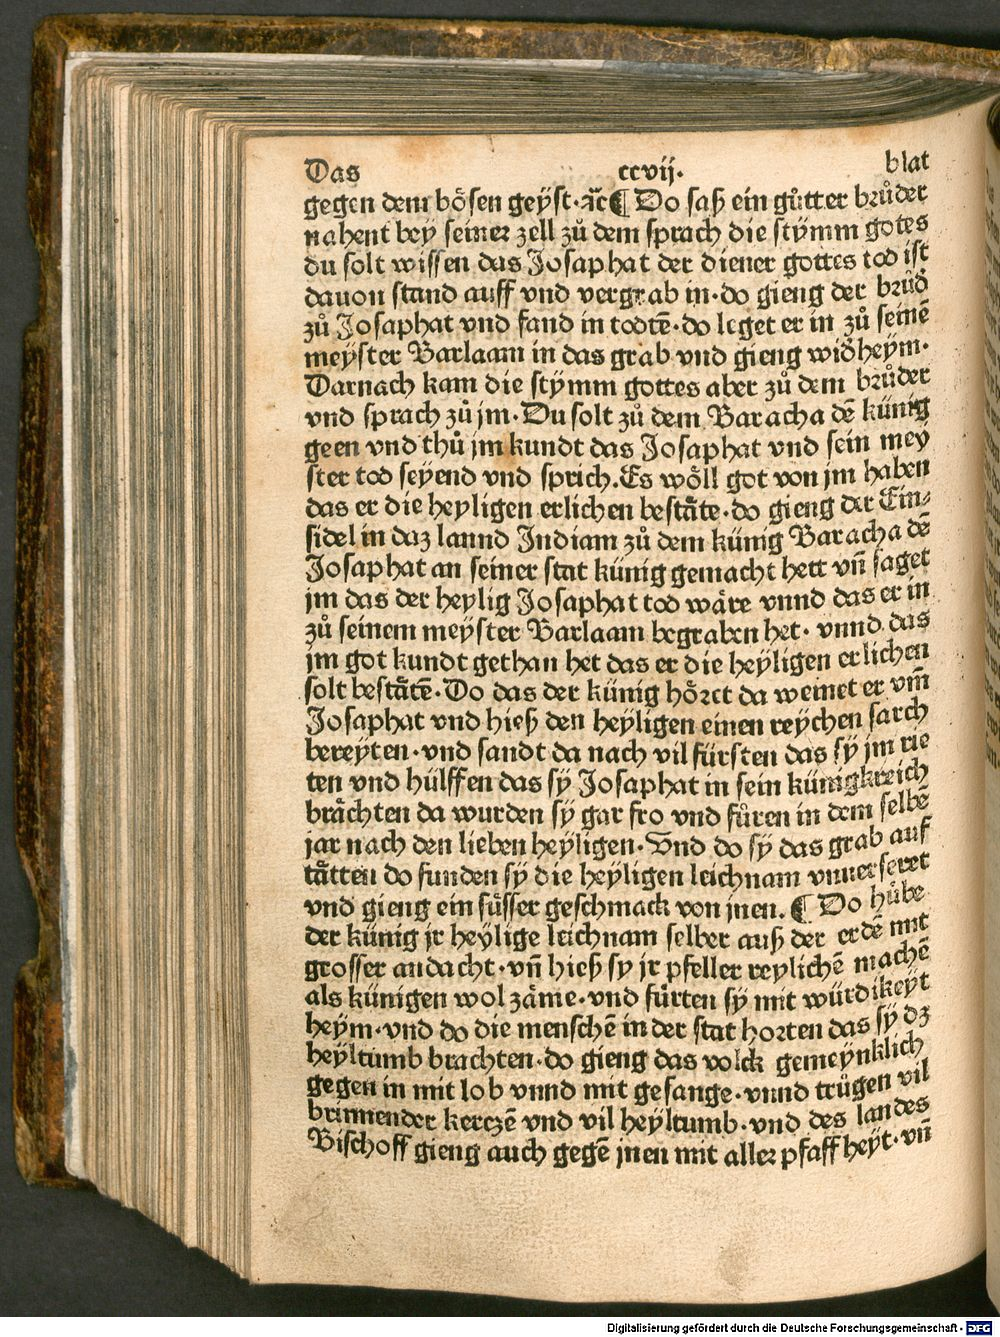 Das ccvij. blat
gegen dem bösen geÿst·ꝛc̄ ¶ Do saß ein gůtter brůder
nahent bey seiner zell zů dem sprach die stÿmm gotes
du solt wissen das Josaphat der diener gottes tod ist
dauon stand auff vnd vergrab in·do gieng der brůd̄
zů Josaphat vnd fand in todtē·do leget er in zů seinē
meÿster Barlaam in das grab vnd gieng wid̄heÿm·
Darnach kam die stÿmm gottes aber zů dem brůder
vnd sprach zů jm·Du solt zů dem Baracha dē künig
geen vnd thů jm kundt das Josaphat vnd sein mey
ster tod seÿend vnd sprich.Es wöll got von jm haben
das er die heyligen erlichen bestäte·do gieng der Ein⸗
sidel in daz lannd Indiam zů dem künig Baracha dē
Josaphat an seiner stat künig gemacht hett vn̄ saget
jm das der heylig Josaphat tod wäre vnnd das er in
zů seinem meÿster Barlaam begraben het· vnnd das
jm got kundt gethan het das er die heÿligen erlichen
solt bestätē·Do das der künig höret da weinet er vm̄
Josaphat vnd hieß den heÿligen einen reÿchen sarch
bereyten·vnd sandt da nach vil fürsten das sÿ jm rie
ten vnd hülffen das sÿ Josaphat in sein künigkreich
brächten da wurden sÿ gar fro vnd fůren in dem selbē
jar nach den lieben heyligen·Vnd do sÿ das grab auf
tätten do funden sÿ die heÿligen leichnam vnuerseret
vnd gieng ein süsser geschmack von jnen. ¶ Do hůbe
der künig jr heÿlige leichnam selber auß der erdē mit
grosser andacht·vn̄ hieß sy jr pfeller reylichē machē
als künigen wol zäme·vnd fürten sÿ mit würdikeÿt
heÿm·vnd do die menschē in der stat horten das sÿ dz
heÿltumb brachten·do gieng das volck gemeÿnklich
gegen in mit lob vnnd mit gesange·vnnd trůgen vil
brinnender kerczē vnd vil heÿltumb·vnd des landes
Bischoff gieng auch gegē jnen mit aller pfaffheÿt·vn̄
Digitalisierung gefördert durch die Deutsche Forschungsgemeinschaft - DFG